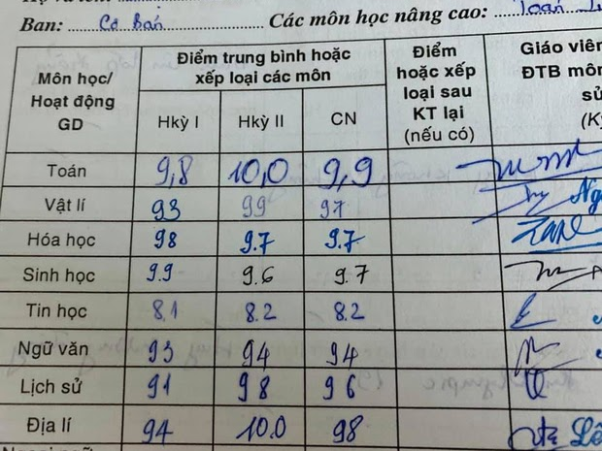 Ban: Cơ bản Các môn học nâng cao: Toán
Môn học/
Hoạt động
GD
Điểm trung bình hoặc
xếp loại các môn
Hkỳ I Hkỳ II CN
Điểm
hoặc xếp
loại sau
KT lại
(nếu có)
Giáo viên
ĐTB môn
sử
(K
Toán 9,8 10,0 9,9
Vật lí 93 99 97
Hóa học 98 9.7 9.7
Sinh học 9.9 9.6 9.7
Tin học 8.1 8.2 8.2
Ngữ văn 93 94 94
Lịch sử 91 98 96
Địa lí 94 10.0 98